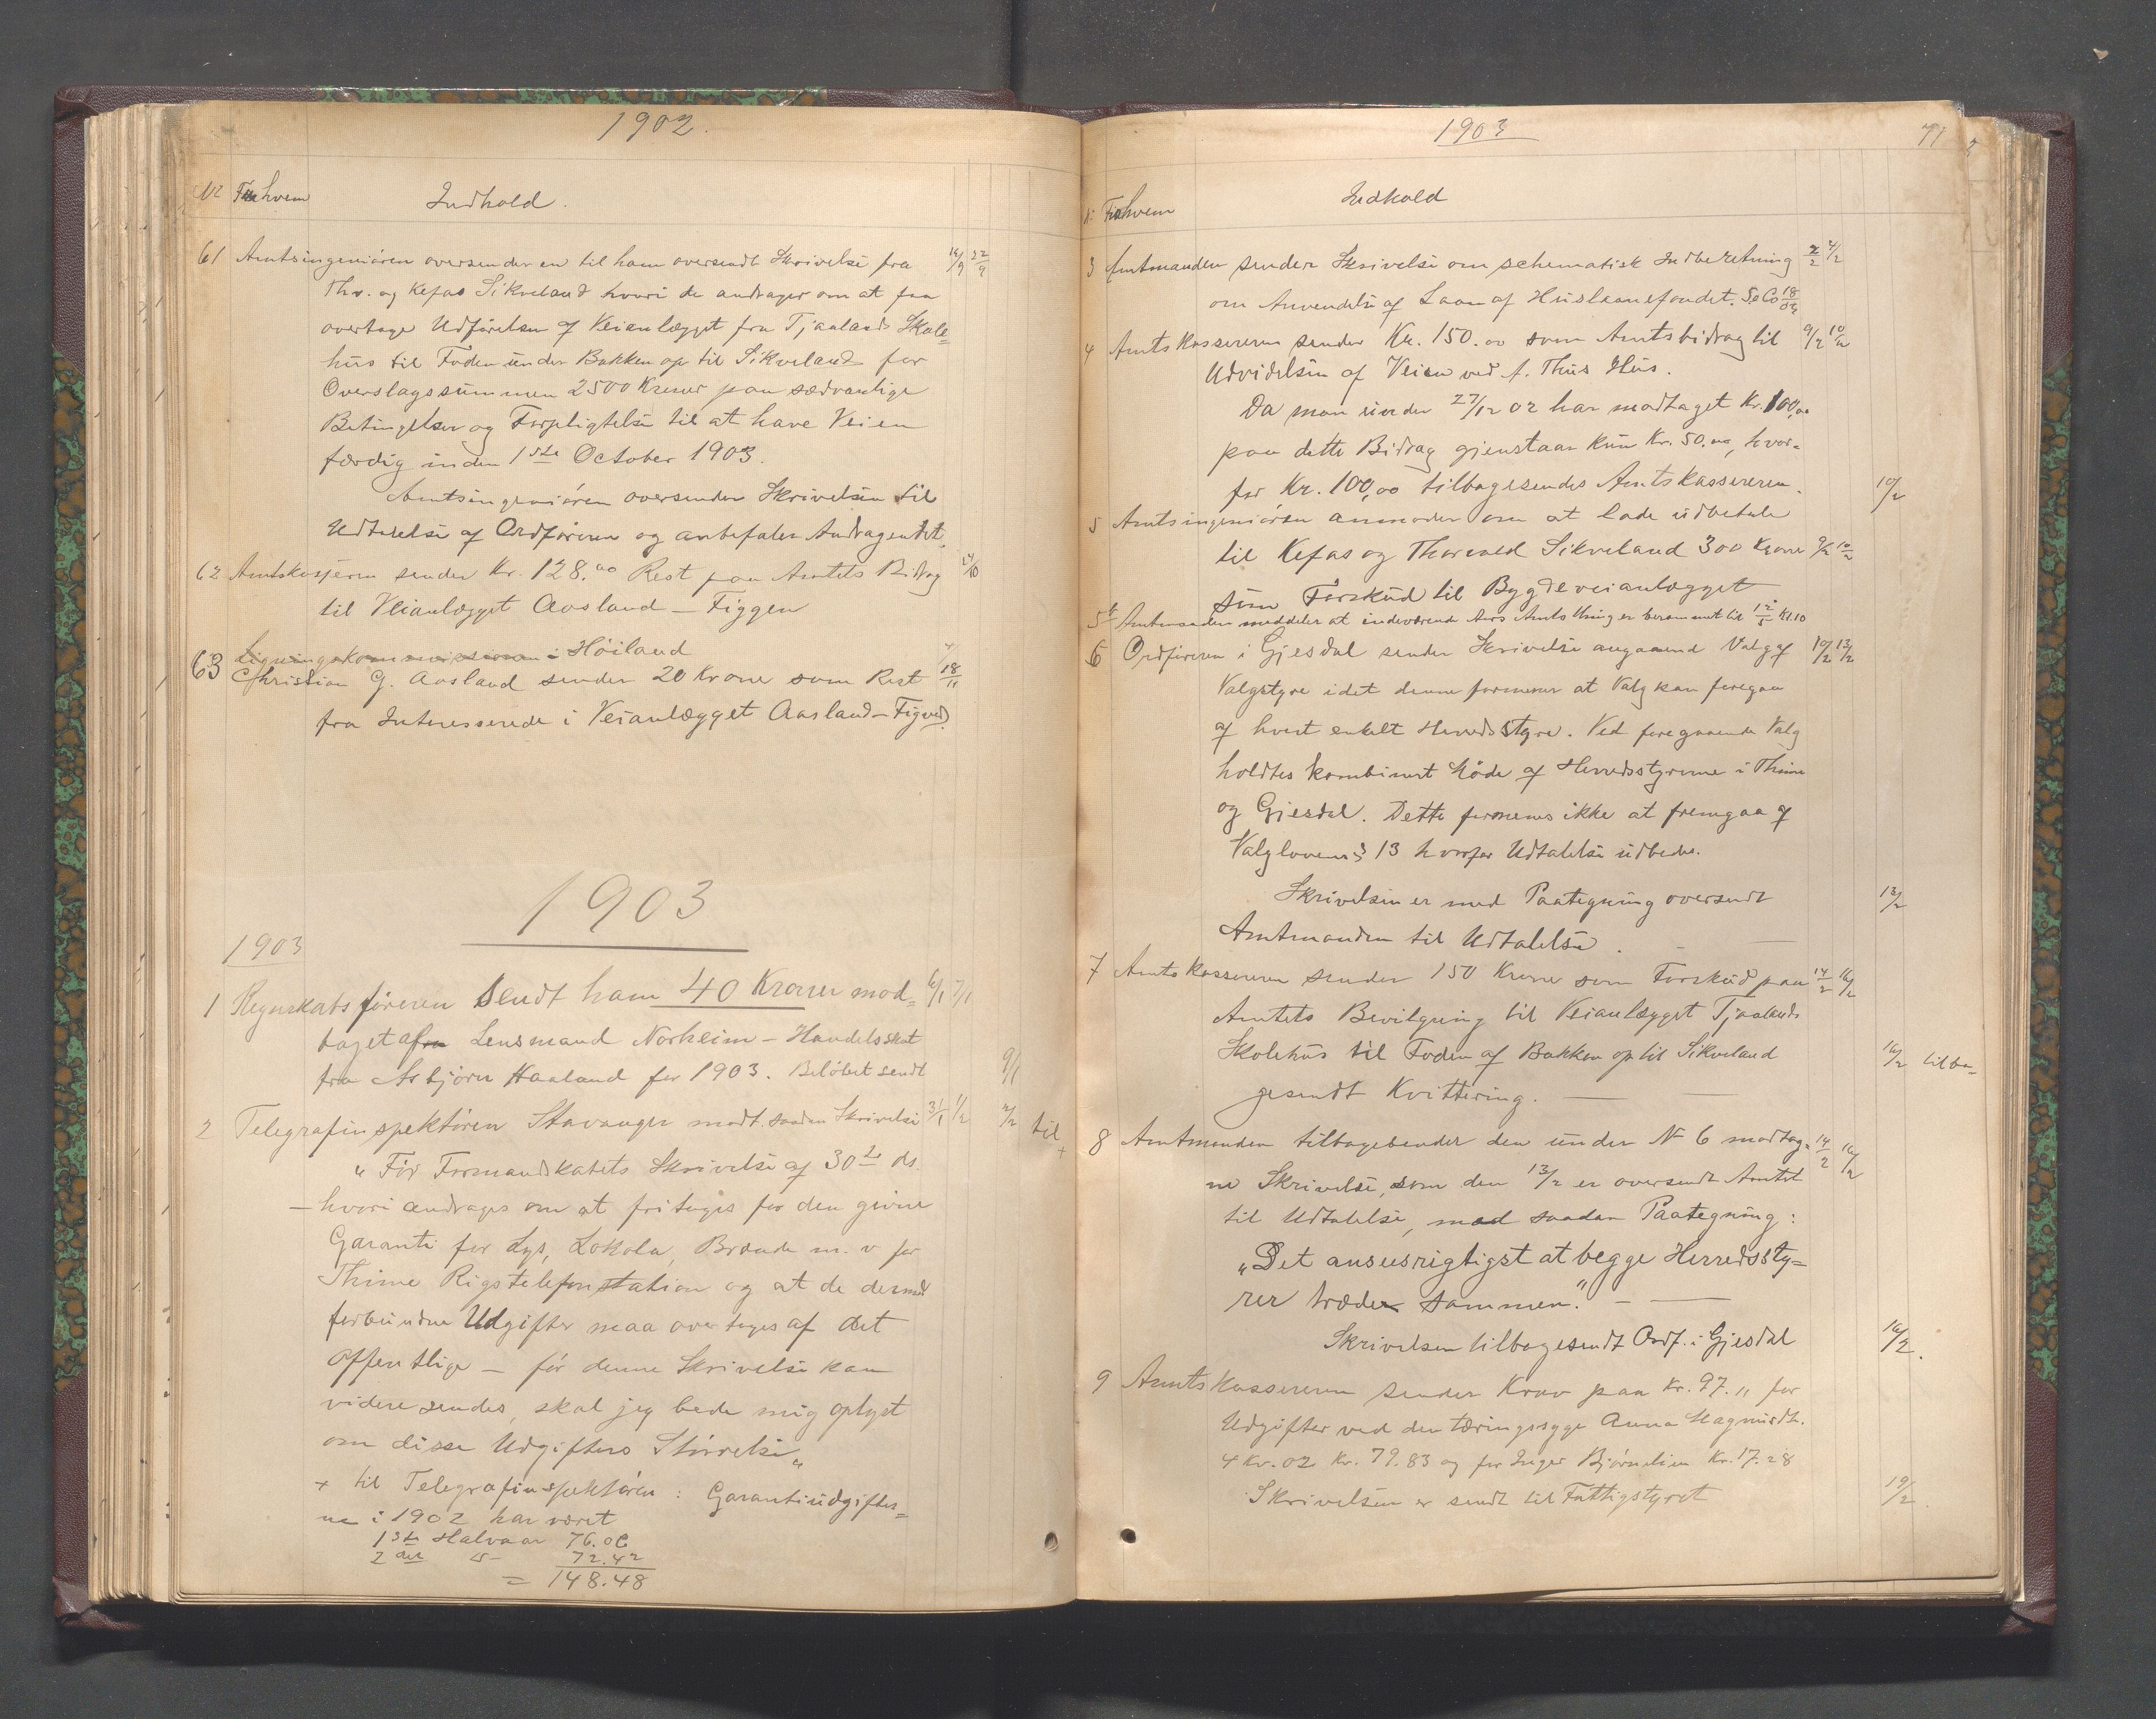 1902.
Nr Fra hvem Indhold.
61 Amtsingeniøren oversender en til ham oversendt Skrivelse fra 16/9 22/9
Thv. og Kefas Sikveland hvori de andrager om at faa
overtage Udførelsen af Veianlægget fra Tjaalands Skole=
hus til Foden under Bakken op til Sikveland for
Overslagssummen 2500 Kroner paa sædvanlige
Betingelser og Forpligtelse til at have Veien
færdig inden 1ste October 1903.
Amtsingeniøren oversender Skrivelsen til
Udtalelse af Ordføreren og anbefaler Andragendet.
62 Amtskasseren sender Kr. 128.00 Rest paa Amtets Bidrag
til Veianlægget Aasland – Figgen
Ligningskommissionen i Høiland
63 Christian G. Aasland sender 20 Kroner som Rest 18/11
fra Interesserede i Veianlægget Aasland – Figved.
1903
1903
1 Regnskabsføreren sendt ham 40 Kroner mod= 6/1 7/1
taget af Lensmand Norheim – Handelsskat
fra Asbjørn Haaland for 1903. Beløbet sendt 9/1
2 Telegrafinspektøren Stavanger modt. saadan Skrivelse 31/1 1/2 2/2 til +
"Før Formandskabets Skrivelse af 30te ds.
– hvori andrages om at fritages for den givne
Garanti for Lys, Lokale, Brænde m. v for
Thime Rigstelefonstation og at de dermed
forbundne Udgifter maa overtages af det
Offentlige – før denne Skrivelse kan
videresendes, skal jeg bede mig oplyst
om disse Udgifters Størrelse"
+ til Telegrafinspektøren: Garantiudgifter=
ne i 1902 har været
1ste Halvaar 76.06
2det – 72.42
= 148.48
1903
71
Fra hvem Indhold
3 Amtmanden sender Skrivelse om schematisk Indberetning 2/2 4/2
om Anvendelse af Laan af Huslaanefondet.
4 Amtskassereren sender Kr. 150.00 som Amtsbidrag til 9/2 10/2
Udvidelsen af Veien ved A. Thus Hus.
Da man under 27/12 02 har modtaget Kr. 100,00
paa dette Bidrag gjenstaar kun Kr. 50.00, hvor=
for Kr. 100,00 tilbagesendes Amtskassereren. 10/2
5 Amtsingeniøren anmoder om at lade udbetale
til Kefas og Thorvald Sikveland 300 Kroner 9/2 10/2
som Forskud til Bygdeveianlægget
5b Amtmanden meddeler at indeværende Aars Amtsthing er berammet til 12/5 Kl. 10
6 Ordføreren i Gjesdal sender Skrivelse angaaend Valg af 10/2 13/2
Valgstyre idet denne formener at Valg kan foregaa
af hvert enkelt Herredsstyre. Ved foregaaende Valg
holdtes kombinert Møde af Herredsstyrerne i Thime
og Gjesdal. Dette formenes ikke at fremgaa af
Valglovens § 13 hvorfor Udtalelse udbedes.
Skrivelsen er med Paategning oversendt 13/2
Amtmanden til Udtalelse.
7 Amtskassereren sender 150 Kroner som Forskud paa 14/2 16/2
Amtets Bevilgning til Veianlægget Tjaalands
Skolehus til Foden af Bakken op til Sikveland 16/2 tilba=
gesendt Kvittering.
8 Amtmanden tilbagesender den under No 6 modtag= 14/2 16/2
ne Skrivelse, som den 13/2 er oversendt Amtet
til Udtalelse, med saadan Paategning:
"Det ansees rigtigst at begge Herredssty=
rer træder sammen."
Skrivelsen tilbagesendt Ordf. i Gjesdal 16/2.
9 Amtskassereren sender Krav paa Kr. 97. " for
Udgifter ved den tæringssyge Anna Magnusdt.
4 Kv. 02 Kr. 79.83 og for Inger Kr. 17.28
Skrivelsen er sendt til Fattigstyret 19/2.